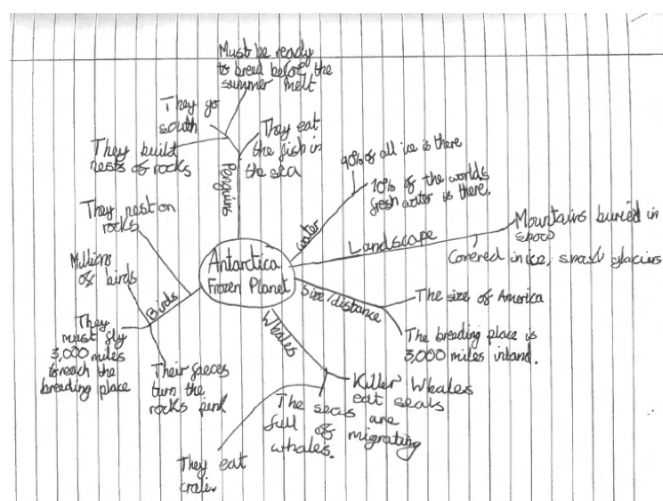 Antarctica
Frozen Planet
Penguins
Must be ready
to breed before the
summer melt
They go
south
They build
nests of rocks
They eat
the fish in
the sea
water
90% of all ice is there
10% of the worlds
fresh water is there.
Landscape
Mountains buried in
snow
Covered in ice, snow glaciers
Size/distance
The size of America
The breeding place is
3,000 miles inland.
Whales
Killer Whales
eat seals
The seas are
full of migrating
whales.
They eat
Birds
They nest on
rocks
Millions
of birds
They
must fly
3,000 miles
to reach the
breeding place
Their faeces
turn the
rocks pink